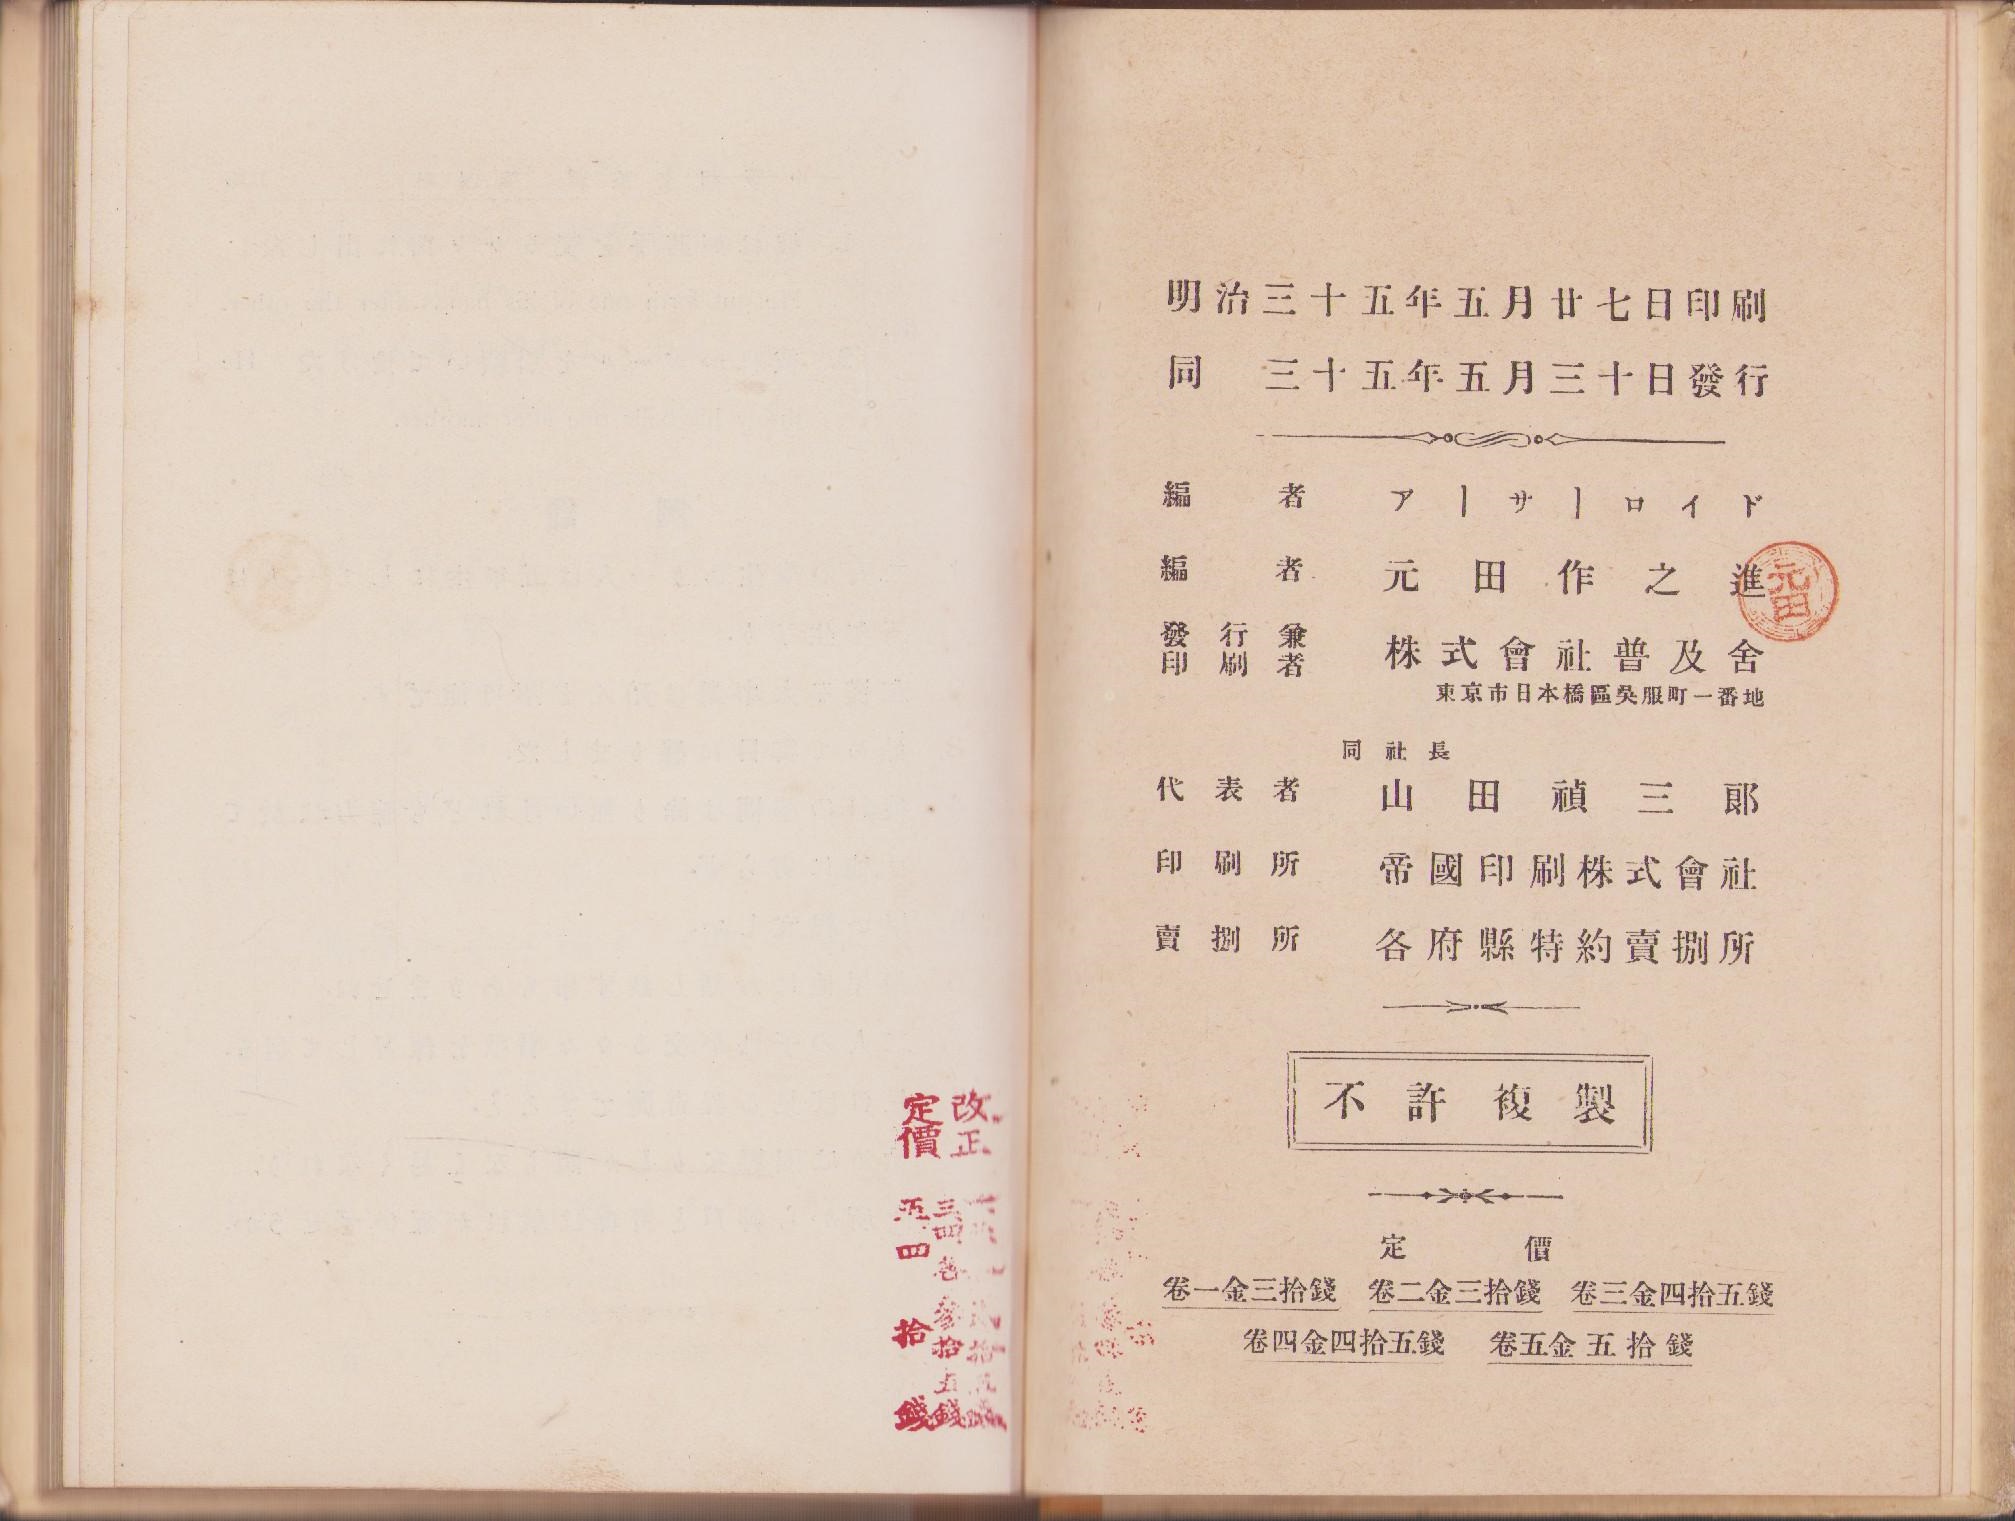 明治三十五年五月廿七日印刷
同 三十五年五月三十日發行
編者 アーサーロイド
編者 元田作之進
元田
發行兼印刷者 株式會社普及舍
東京市日本橋區吳服町一番地
同社長
代表者 山田禎三郎
印刷所 帝國印刷株式會社
賣捌所 各府縣特約賣捌所
不許複製
定價
卷一金三拾錢 卷二金三拾錢 卷三金四拾五錢
卷四金四拾五錢 卷五金五拾錢
改正
定價
三四卷 參拾五錢
五 四拾錢